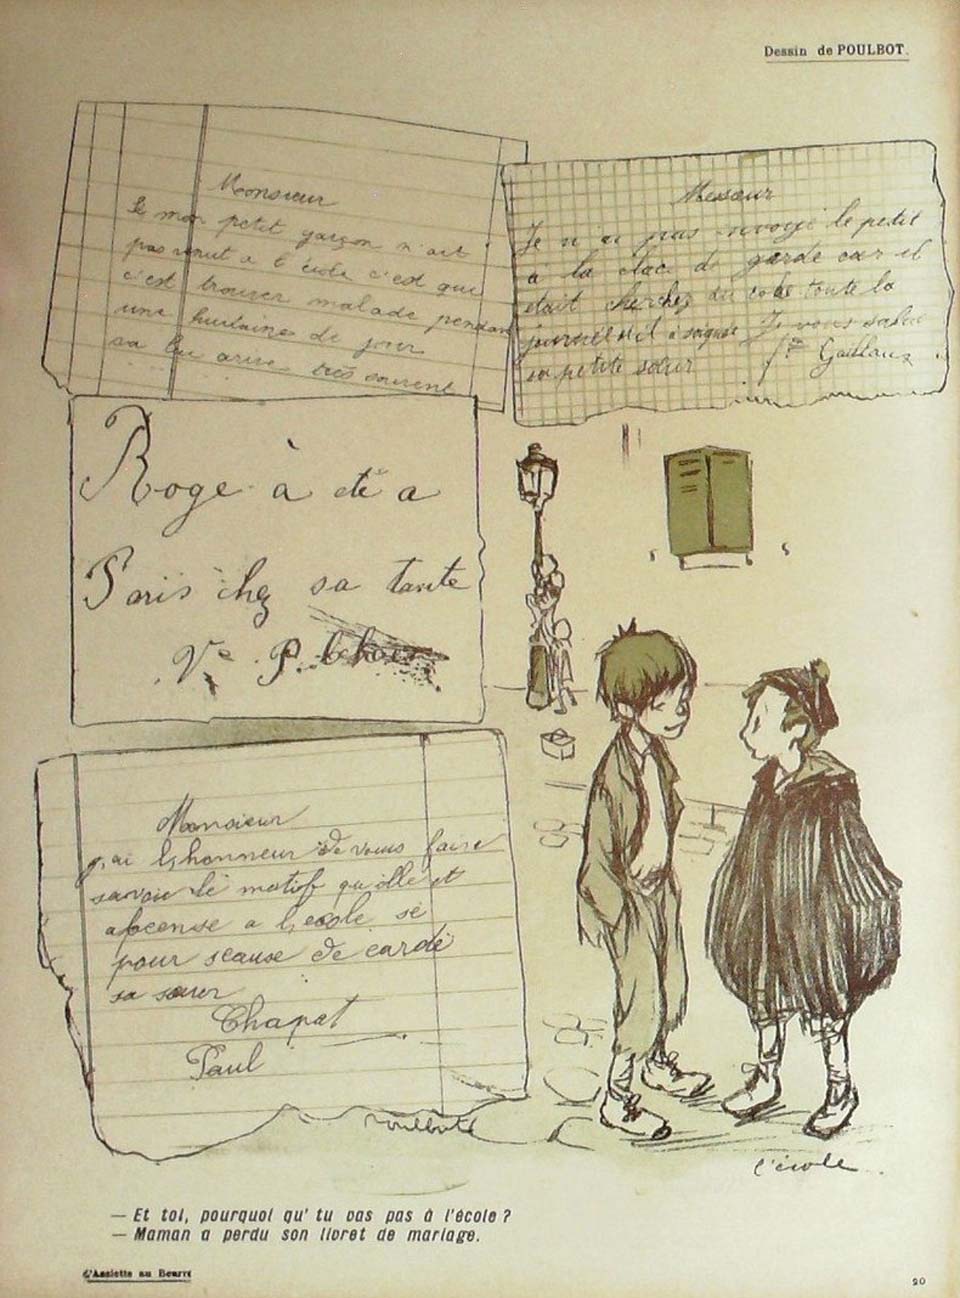 Dessin de POULBOT.
Monsieur
le mon petit garçon n'ait
pas venut a l'école c'est que
c'est trouver malade pendan
une huitaine de jour
sa lui arive très souvent
Messieur
Je n'ai pas envoyé le petit
à la clace de garde car il
etait cherchez du coke toute la
journée et il à soigné
sa petite soeur
Je vous salue
Gaillaux
Roge à eté a
Paris chez sa tante
Ve P.
Monsieur
j'ai lhhonneur de vous faire
savoir le motif qu'elle et
abcense a l'ecole se
pour scause de cardé
sa soeur
Chapat
Paul
Poulbot
l'école
— Et toi, pourquoi qu' tu vas pas à l'école ?
— Maman a perdu son livret de mariage.
d'Assiette au Beurre
20